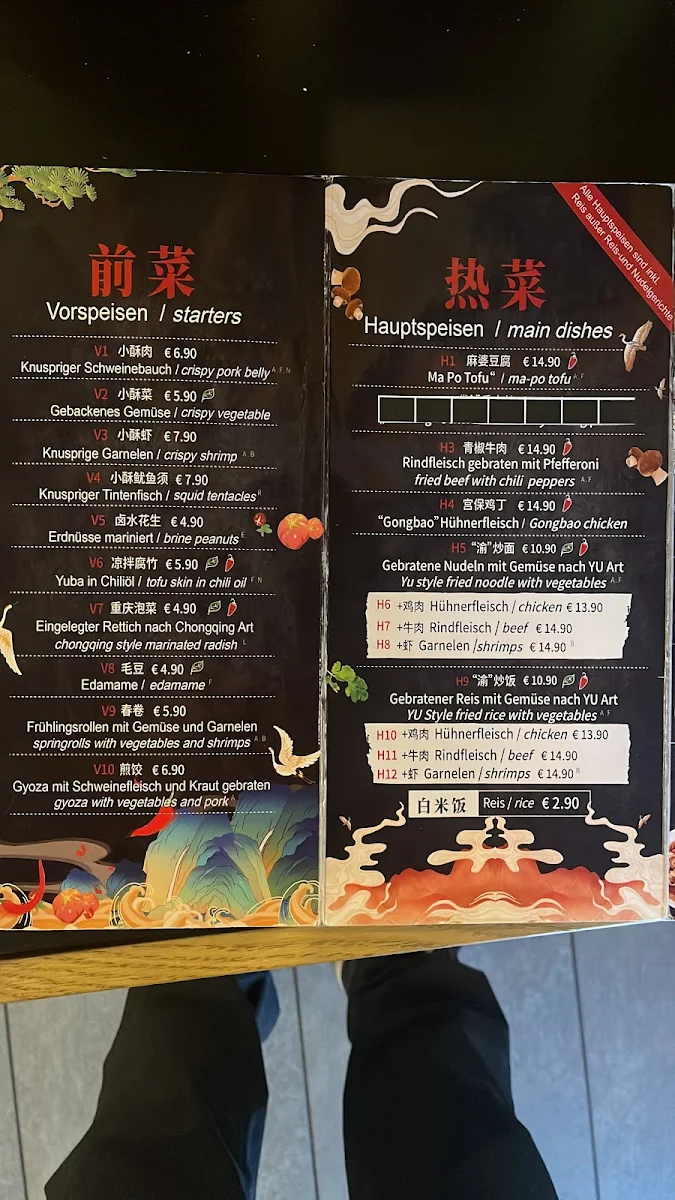 前菜
Vorspeisen / starters
V1 小酥肉 €6.90
Knuspriger Schweinebauch / crispy pork belly A,F,N
V2 小酥菜 €5.90
Gebackenes Gemüse / crispy vegetable
V3 小酥虾 €7.90
Knusprige Garnelen / crispy shrimp A,B
V4 小酥鱿鱼须 €7.90
Knuspriger Tintenfisch / squid tentacles R
V5 卤水花生 €4.90
Erdnüsse mariniert / brine peanuts E
V6 凉拌腐竹 €5.90
Yuba in Chiliöl / tofu skin in chili oil F,N
V7 重庆泡菜 €4.90
Eingelegter Rettich nach Chongqing Art
chongqing style marinated radish L
V8 毛豆 €4.90
Edamame / edamame F
V9 春卷 €5.90
Frühlingsrollen mit Gemüse und Garnelen
springrolls with vegetables and shrimps A,B
V10 煎饺 €6.90
Gyoza mit Schweinefleisch und Kraut gebraten
gyoza with vegetables and pork A
Alle Hauptspeisen sind inkl.
Reis außer Reis-und Nudelgerichte
热菜
Hauptspeisen / main dishes
H1 麻婆豆腐 €14.90
Ma Po Tofu“ / ma-po tofu A,F
H3 青椒牛肉 €14.90
Rindfleisch gebraten mit Pfefferoni
fried beef with chili peppers A,F
H4 宫保鸡丁 €14.90
“Gongbao”Hühnerfleisch / Gongbao chicken
H5 “渝”炒面 €10.90
Gebratene Nudeln mit Gemüse nach YU Art
Yu style fried noodle with vegetables A,F
H6 +鸡肉 Hühnerfleisch / chicken €13.90
H7 +牛肉 Rindfleisch / beef €14.90
H8 +虾 Garnelen /shrimps €14.90 B
H9 “渝”炒饭 €10.90
Gebratener Reis mit Gemüse nach YU Art
YU Style fried rice with vegetables A,F
H10 +鸡肉 Hühnerfleisch / chicken €13.90
H11 +牛肉 Rindfleisch / beef €14.90
H12 +虾 Garnelen /shrimps €14.90 B
白米饭 Reis / rice €2.90